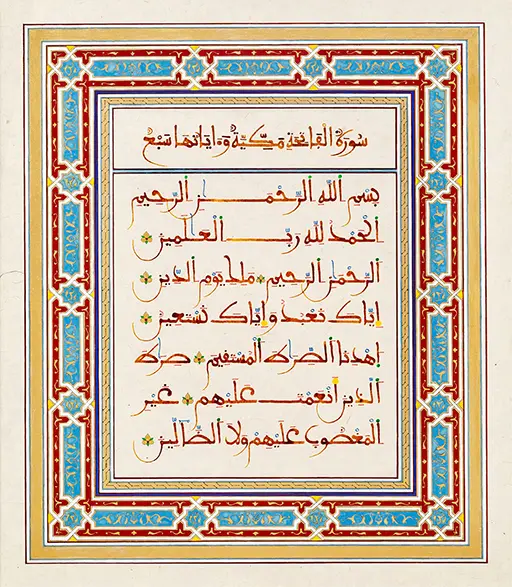 سُورَةُ الْفَاتِحَةِ مَكِّيَّةٌ وَءَايَاتُهَا سَبْعٌ
بِسْمِ اللَّهِ الرَّحْمَٰنِ الرَّحِيمِ
الْحَمْدُ لِلَّهِ رَبِّ الْعَٰلَمِينَ
الرَّحْمَٰنِ الرَّحِيمِ مَلِكِ يَوْمِ الدِّينِ
إِيَّاكَ نَعْبُدُ وَإِيَّاكَ نَسْتَعِينُ
اهْدِنَا الصِّرَٰطَ الْمُسْتَقِيمَ صِرَٰطَ
الَّذِينَ أَنْعَمْتَ عَلَيْهِمْ غَيْرِ
الْمَغْضُوبِ عَلَيْهِمْ وَلَا الضَّالِّينَ